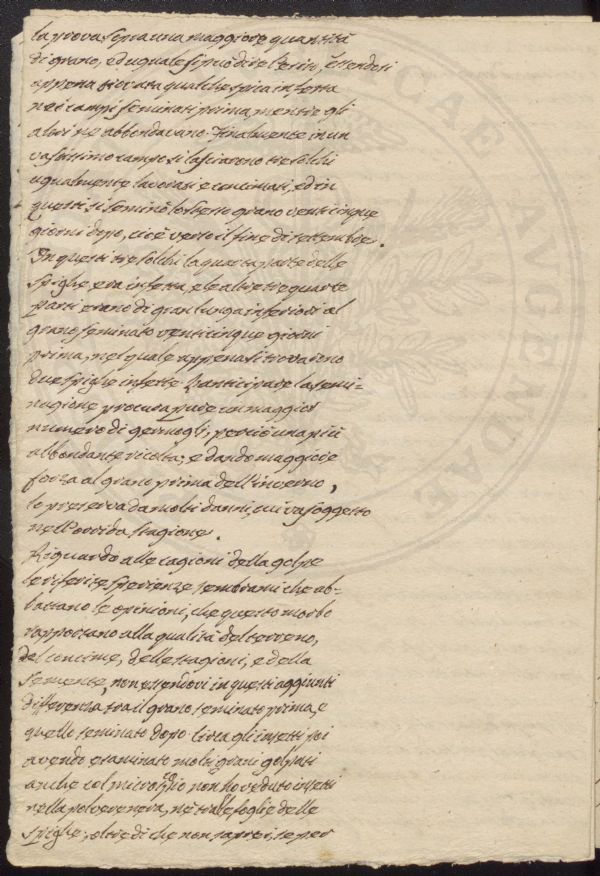 la prova sopra una maggiore quantità
di grano, ed uguale si può dire l'esito, essendosi
appena trovata qualche spica infetta
nei campi seminati prima, mentre gli
altri ne abbondavano. Finalmente in un
vastissimo campo si lasciarono tre solchi
ugualmente lavorati e concimati, ed in
questi si seminò lo stesso grano venticinque
giorni dopo, cioè verso il fine di settembre.
In questi tre solchi la quarta parte delle
spighe era infetta, e le altre tre quarte
parti erano di gran lunga inferiori al
grano seminato venticinque giorni
prima, nel quale appena si trovarono
due spighe infette. L'anticipare la semi-
nagione procura pure un maggior
numero di germogli, perciò una più
abbondante ricolta; e dando maggiore
forza al grano prima dell'inverno,
lo preserva da molti danni, cui va soggetto
nell'orrida stagione.
Riguardo alle cagioni della golpe
le riferite sperienze sembrami che ab-
battano le opinioni, che questo morbo
rapportano alla qualità del terreno,
del concime, delle stagioni, e della
semente, non essendovi in questi aggiunti
differenza tra il grano seminato prima, e
quello seminato dopo. Circa gli insetti poi
avendo esaminato molti grani golpati
anche col microscopio non ho veduto insetti
nella polve nera, nè tralle foglie delle
spighe; oltre di che non saprei, se per
CAE AVGENDAE